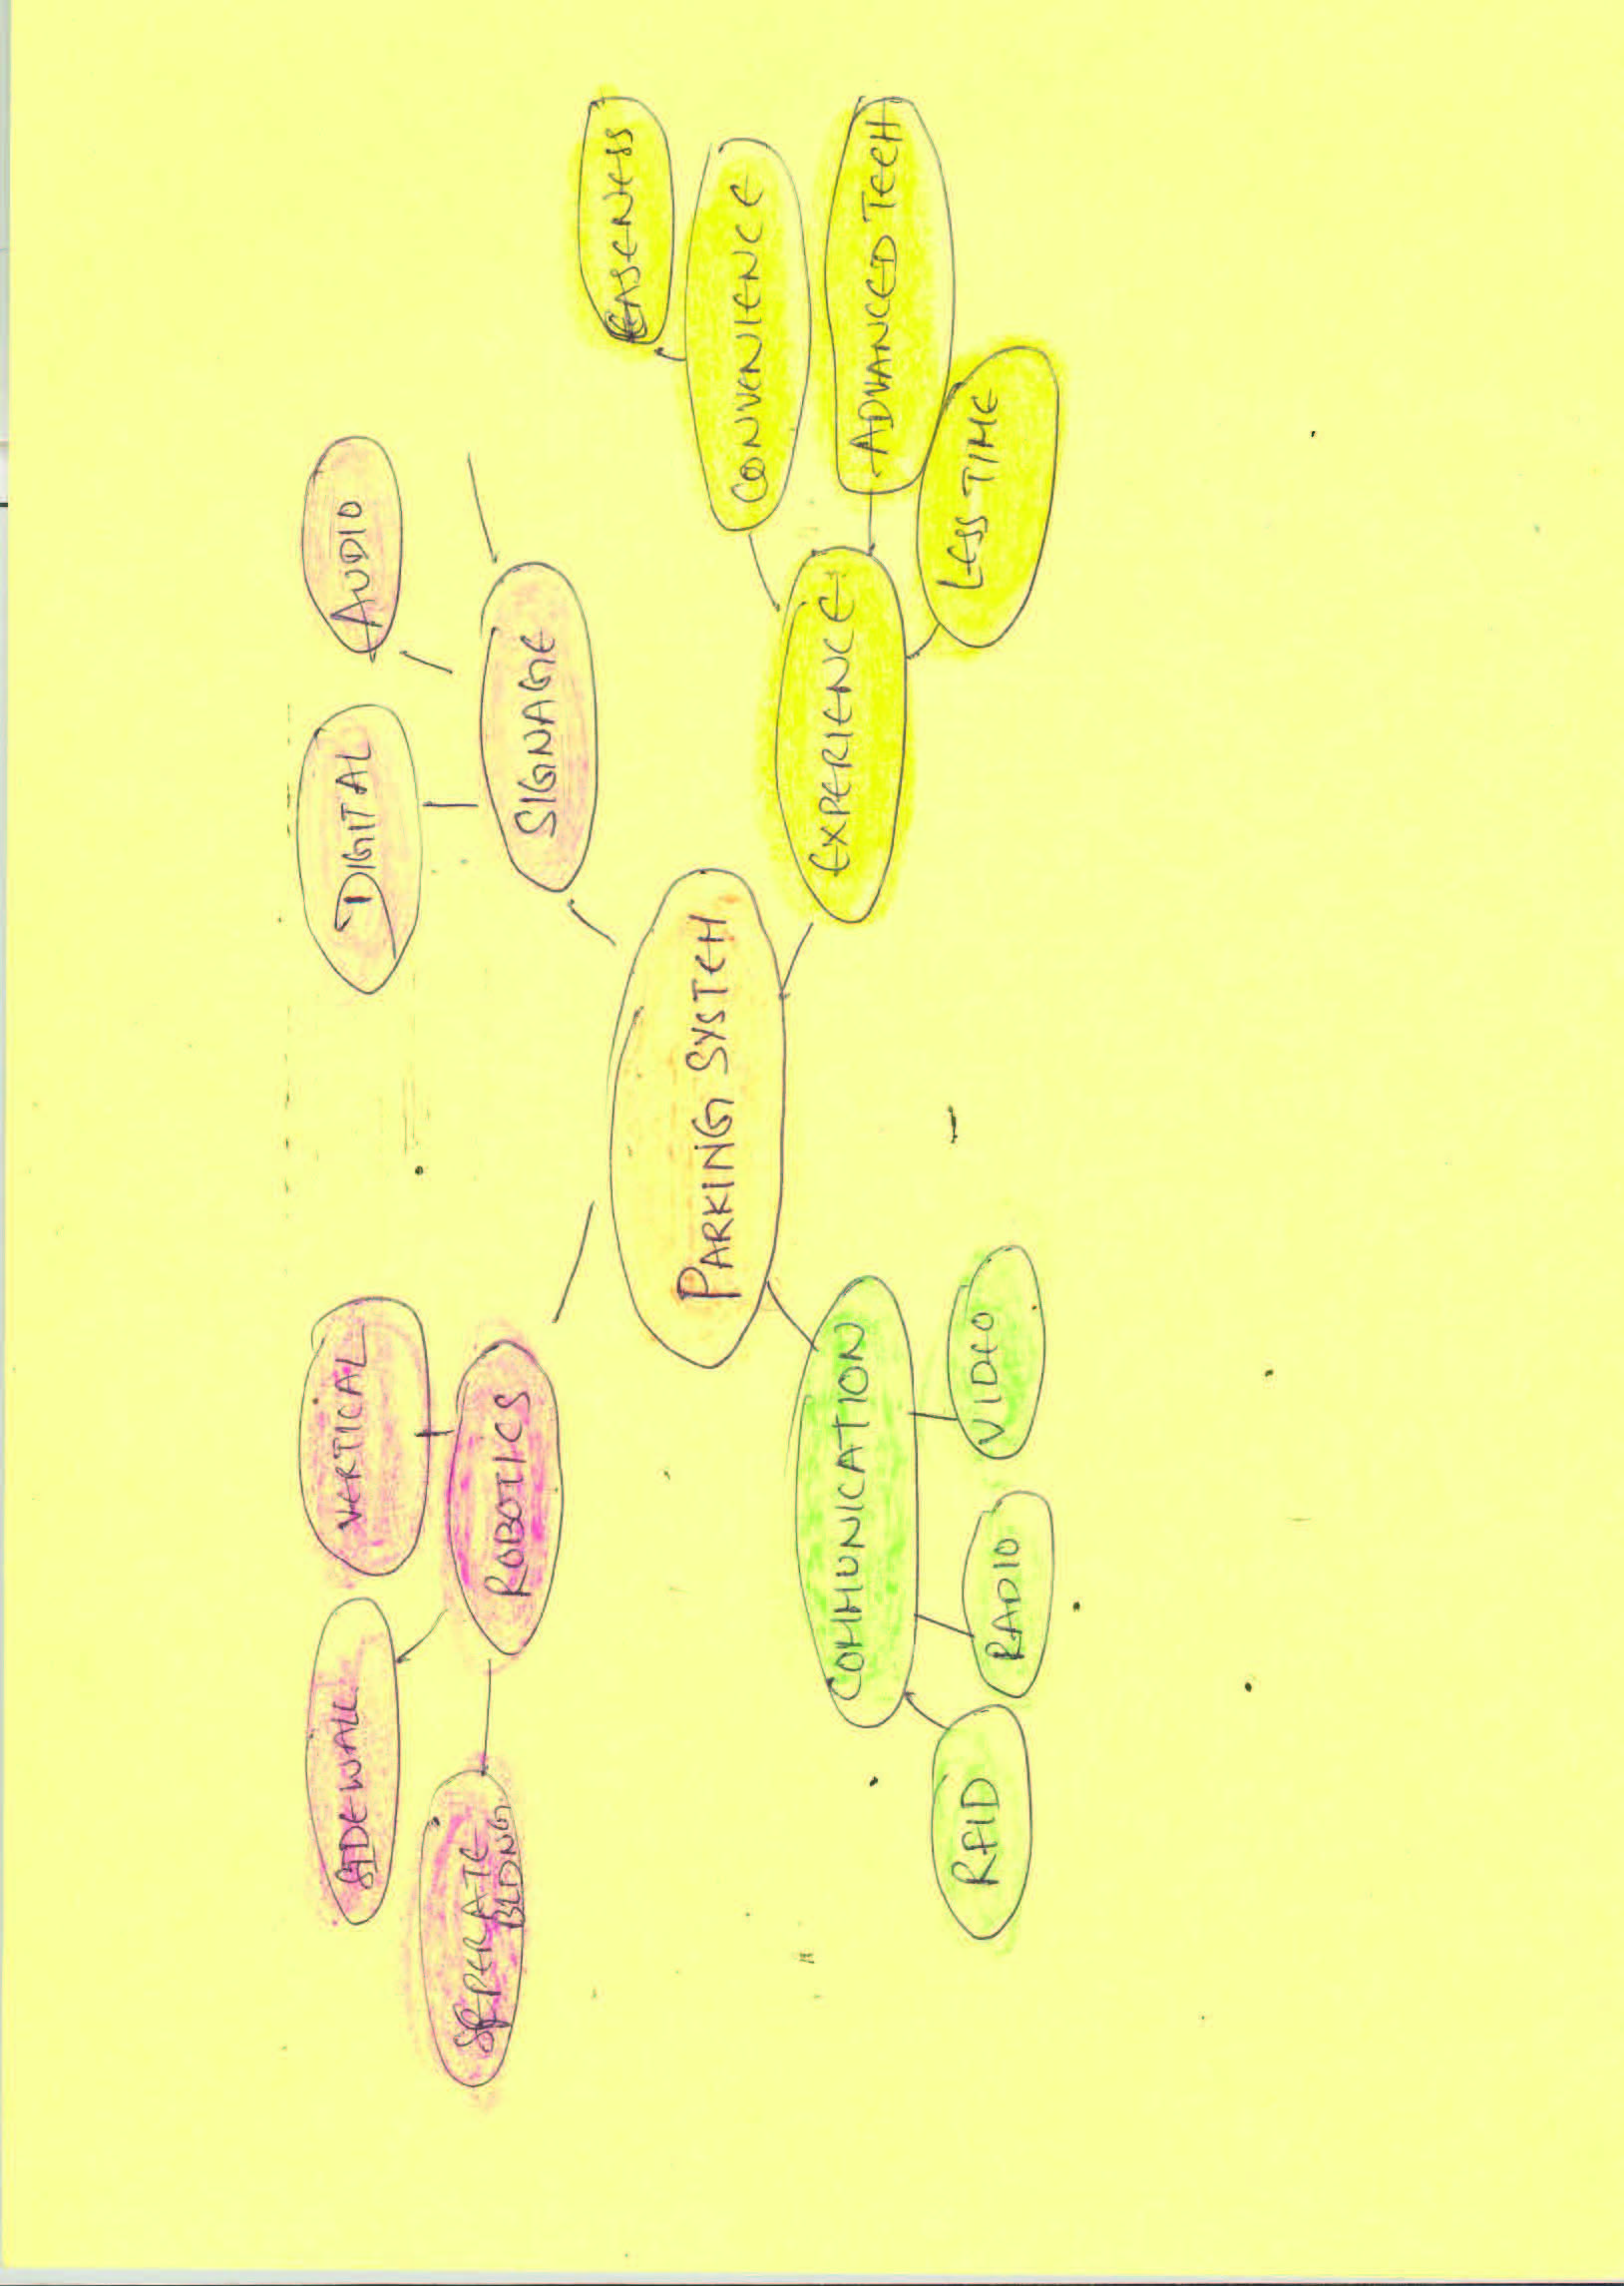 VERTICAL
DIGITAL
AUDIO
SIDEWALL
ROBOTICS
SIGNAGE
SEPERATE
BLDNG.
PARKING SYSTEM
EASENESS
CONVENIENCE
COMMUNICATION
EXPERIENCE
ADVANCED TECH
RFID
RADIO
VIDEO
LESS TIME